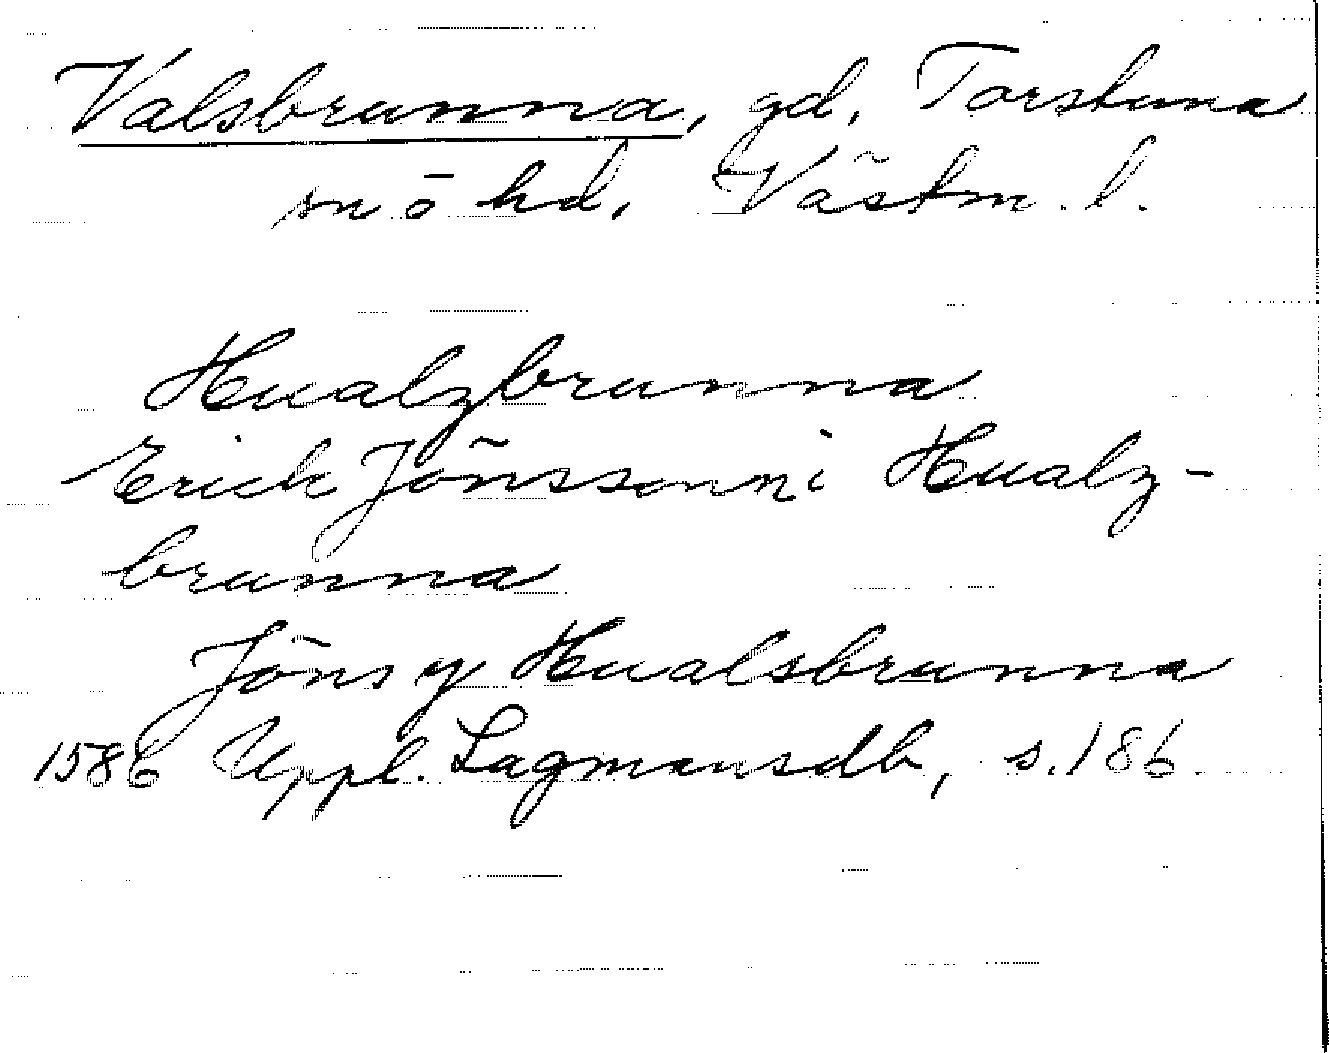 Valsbrunna, gd, Torstuna
sn ō hd, Västm. l.
Hualzbrunna
Erick Jönssonn i Hualz-
brunna
Jöns y Hualsbrunna
1586 Uppl. Lagmansdb, s. 186